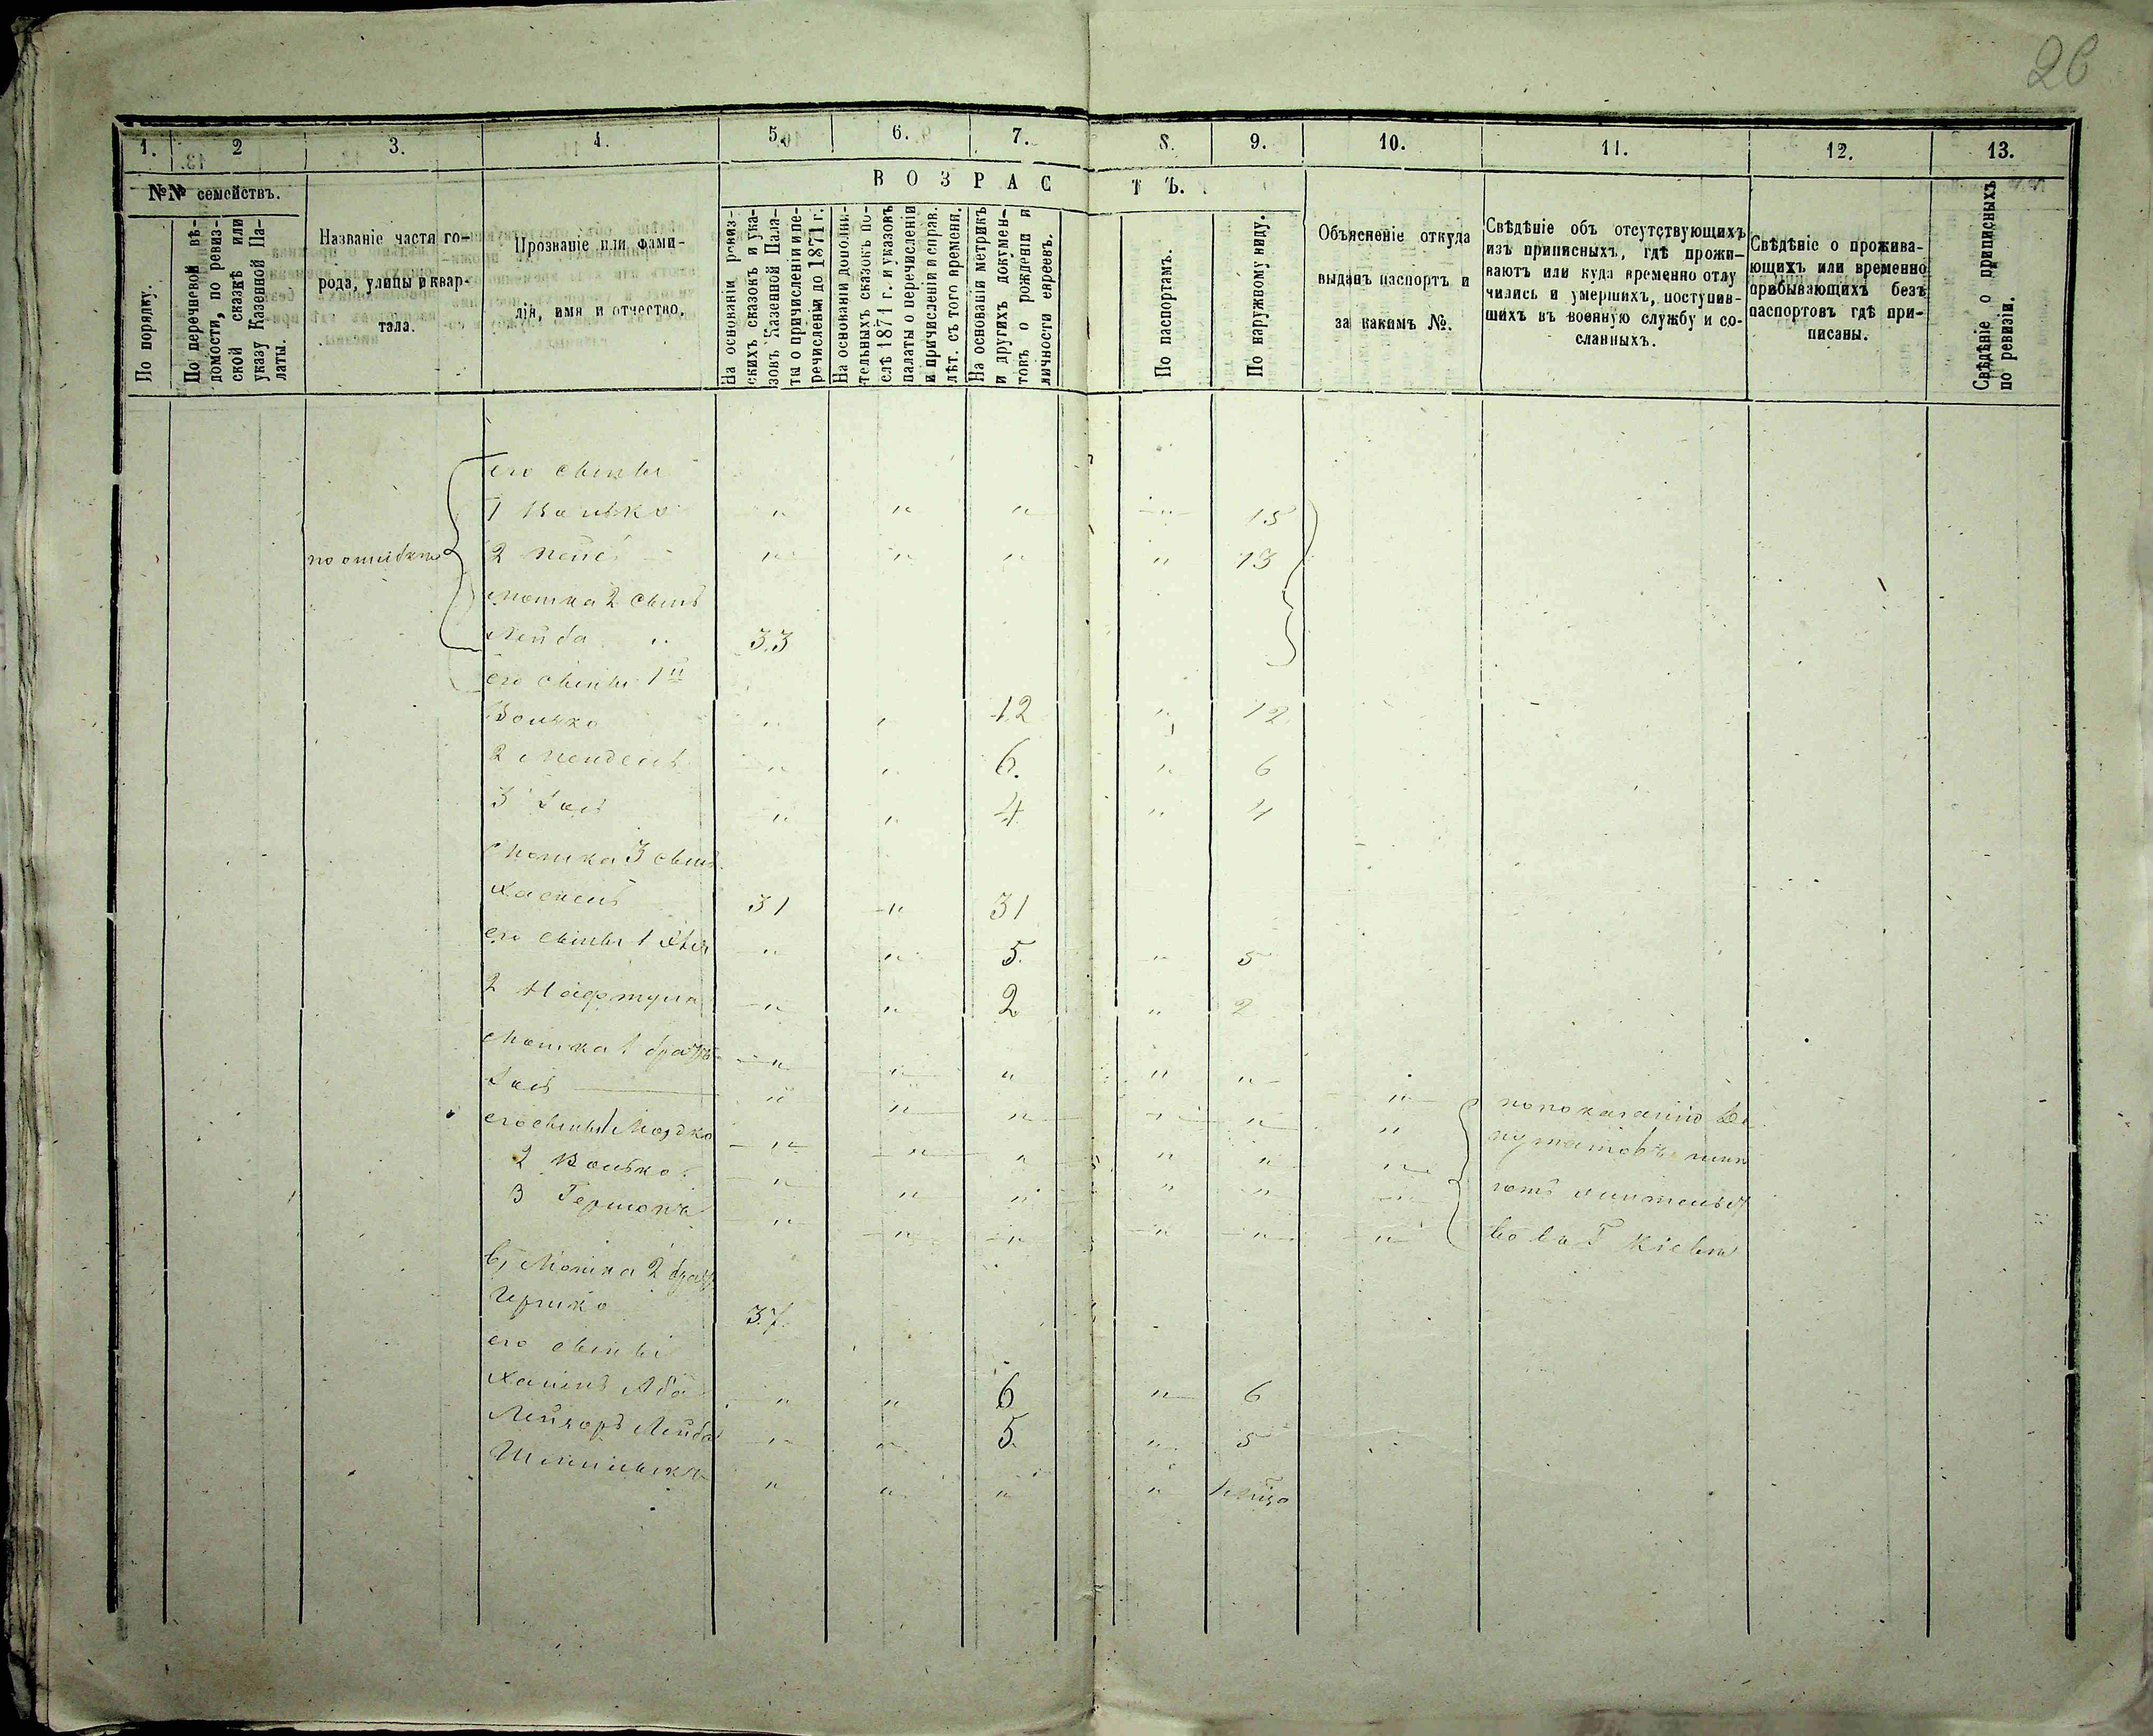 26
1. 2 3. 4. 5. 6. 7. 8. 9. 10. 11. 12. 13.
№№ семействъ.
По порядку.
По перечневой вѣ-
домости, по ревиз-
ской сказкѣ или
указу Казенной Па-
латы.
Названіе части го-
рода, улицы и квар-
тала.
Прозваніе или фами-
лія, имя и отчество.
ВОЗРАСТЪ.
На основаніи ревиз-
скихъ сказокъ и ука-
зовъ Казенной Пала-
ты о причисленіи и пе-
речисленіи до 1871 г.
На основаніи дополни-
тельныхъ сказокъ по-
слѣ 1871 г. и указовъ
палаты о перечисленіи
и причисленіи и справ.
лѣт. съ того времени.
На основаніи метрикъ
и другихъ докумен-
товъ о рожденіи и
личности евреевъ.
По паспортамъ.
По наружному виду.
Объясненіе откуда
выданъ паспортъ и
за какимъ №.
Свѣдѣніе объ отсутствующихъ
изъ приписныхъ, гдѣ прожи-
ваютъ или куда временно отлу
чились и умершихъ, поступив-
шихъ въ военную службу и со-
сланныхъ.
Свѣдѣніе о прожива-
ющихъ или временно
прибывающихъ безъ
паспортовъ гдѣ при-
писаны.
Свѣдѣніе о приписныхъ
по ревизіи.
его сыновья
1 Волько " " " " 15
по ошибкѣ 2 " " " " 13
Мошка 2 сынъ
Лейба " 33
его сыновья 1й
Волько " " 12 " 12
2 Мендель " " 6. " 6
3 " " 4 " 4
Мошка 3 сынъ
Хаскель 31 " 31
его сыновья 1 " " 5. " 5
2 Нафтула " " 2 " 2
Мошка 1 братъ " " " " "
" " " " " " по показанію де
его сыновья 1 Мордко " " " " " " путатовъ имѣ
2 Волько " " " " " " ютъ жительст
3 Гершонъ " " " " " " во въ Г Кіевѣ
Мошка 2 братъ
Ицько 37.
его сыновья
Хаимъ Аба " " 6 " 6
Лейзоръ Лейба " " 5. " 5
" " " "